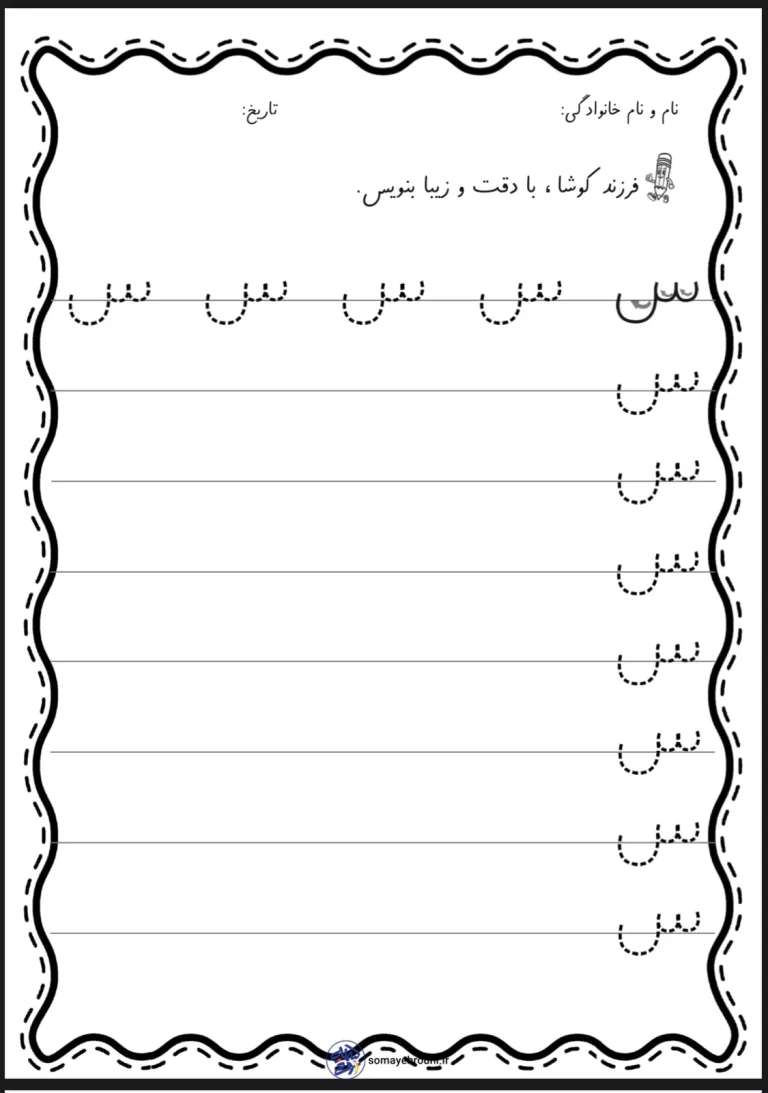 نام و نام خانوادگی: تاریخ:
فرزند کوشا، با دقت و زیبا بنویس.
س س س س س
س
س
س
س
س
س
س
somayehrouhi.ir